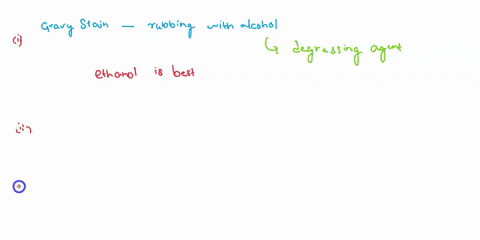 (i) Gravy Stain — rubbing with alcohol
↳ degressing agent
ethanol is best
(ii)